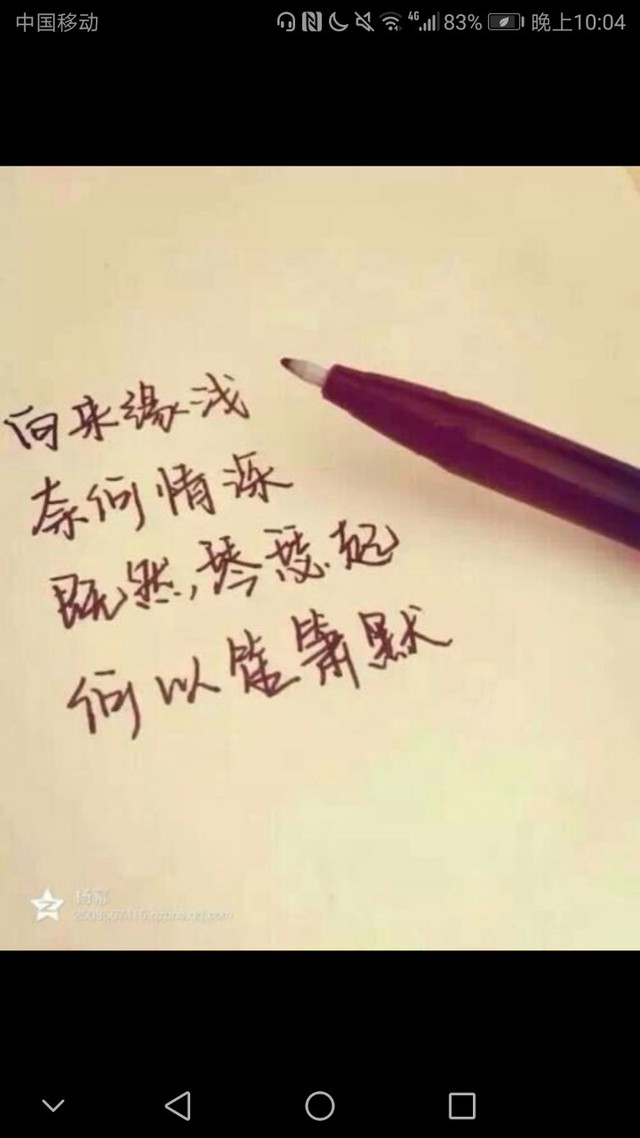 中国移动 4G 83% 晚上10:04
向来缘浅
奈何情深
既然,琴瑟起
何以笙箫默